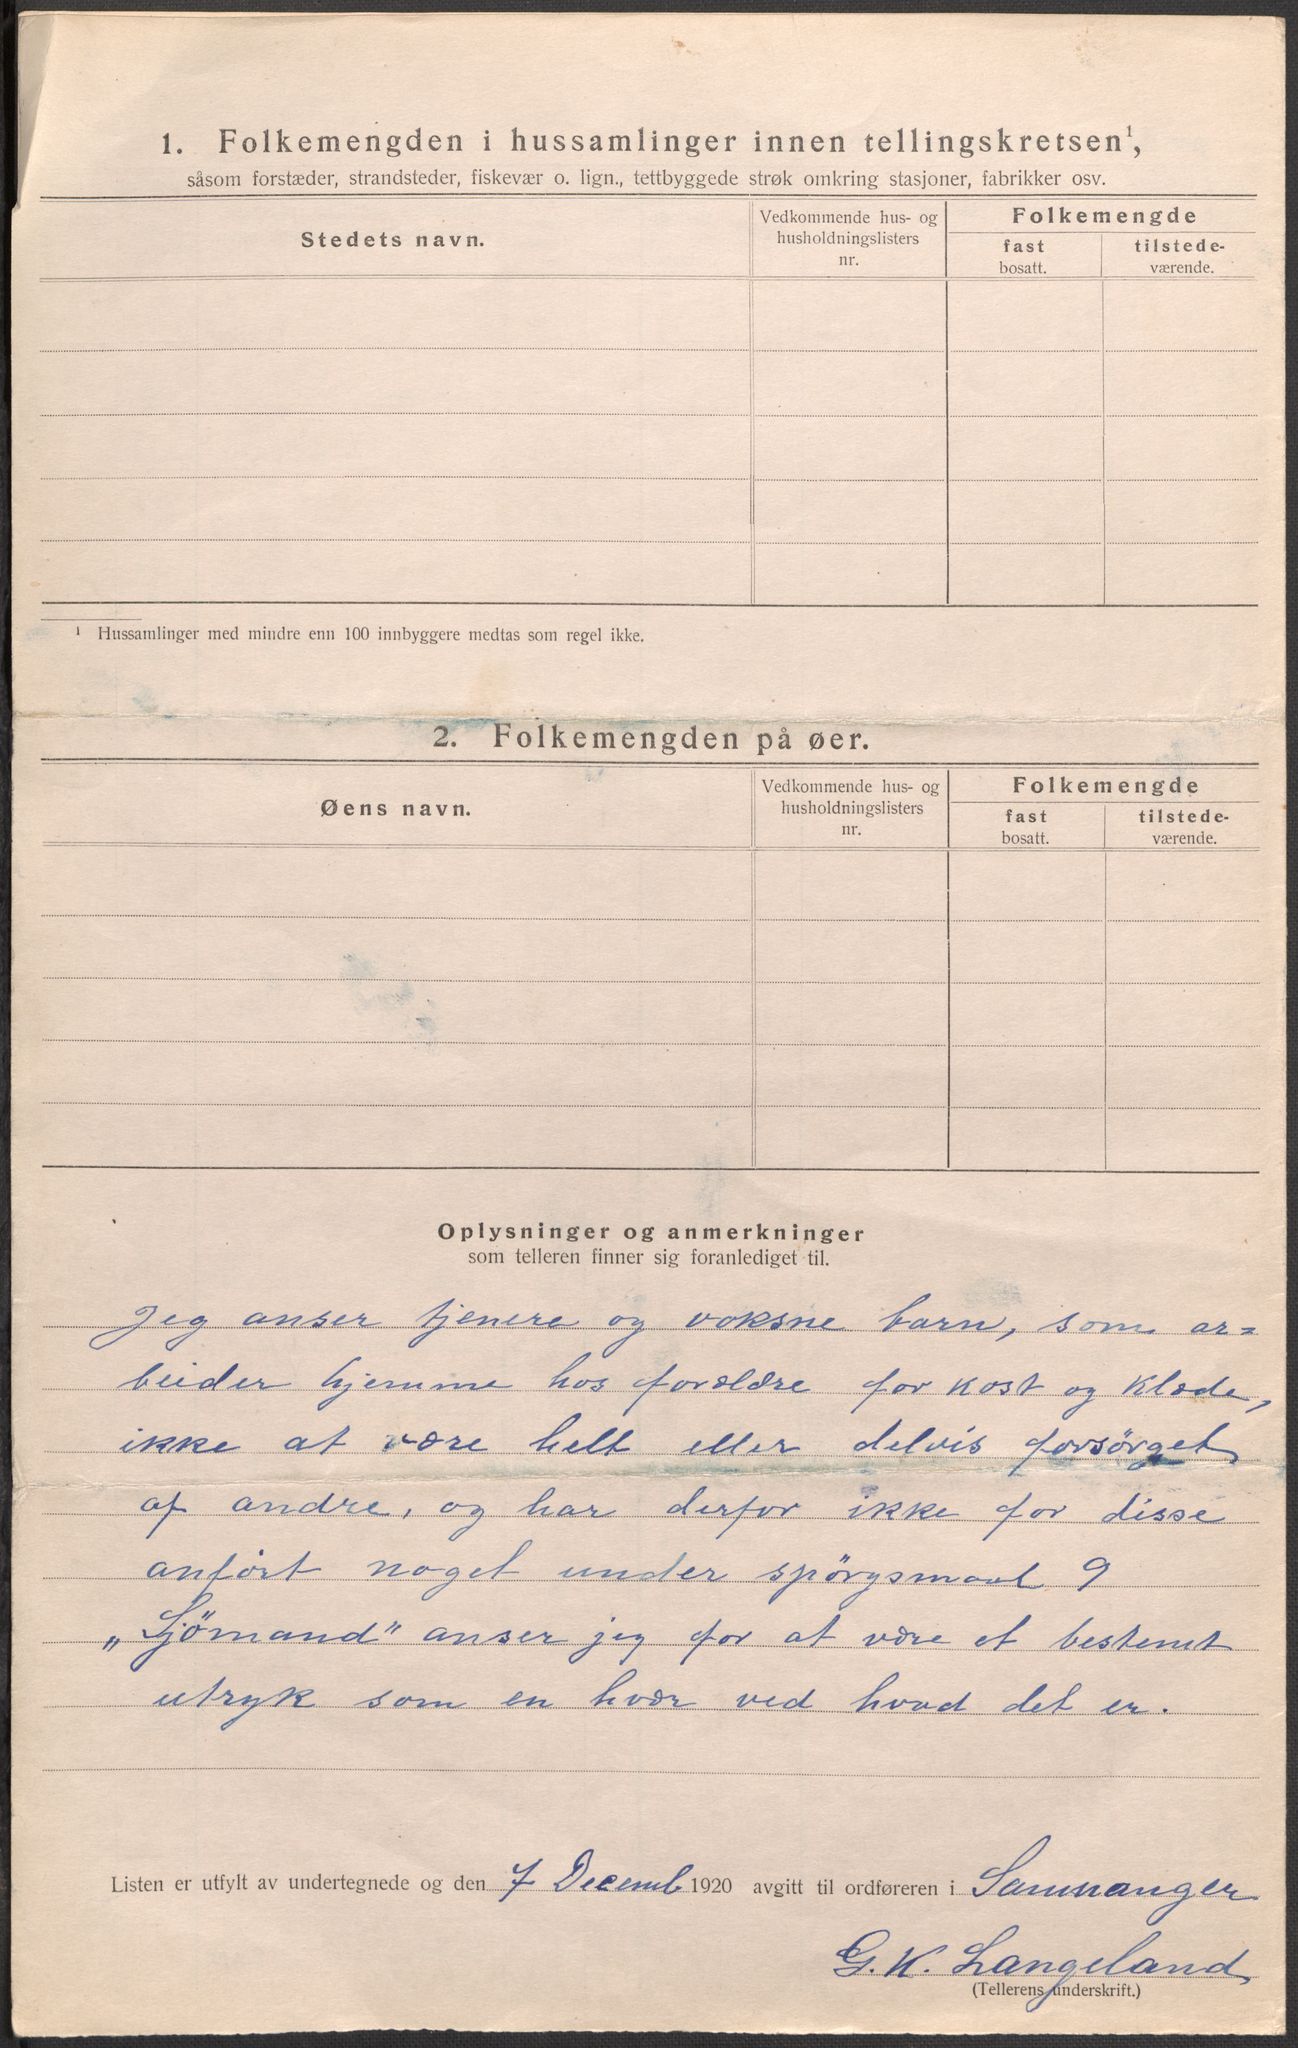 1. Folkemengden i hussamlinger innen tellingskretsen¹,
såsom forstæder, strandsteder, fiskevær o. lign., tettbyggede strøk omkring stasjoner, fabrikker osv.
Stedets navn.
Vedkommende hus- og
husholdningslisters
nr.
Folkemengde
fast
bosatt.
tilstede-
værende.
¹ Hussamlinger med mindre enn 100 innbyggere medtas som regel ikke.
2. Folkemengden på øer.
Øens navn.
Vedkommende hus- og
husholdningslisters
nr.
Folkemengde
fast
bosatt.
tilstede-
værende.
Oplysninger og anmerkninger
som telleren finner sig foranlediget til.
Jeg anser tjenere og voksne barn, som ar=
beider hjemme hos forældre for kost og klæde,
ikke at være helt eller delvis forsörget
af andre, og har derfor ikke for disse
anfört noget under spörgsmaal 9
„Sjömand" anser jeg for at være et bestemt
utryk som en hvær ved hvad det er.
Listen er utfylt av undertegnede og den 7 Decemb 1920 avgitt til ordføreren i Samnanger
G. K. Langeland
(Tellerens underskrift.)